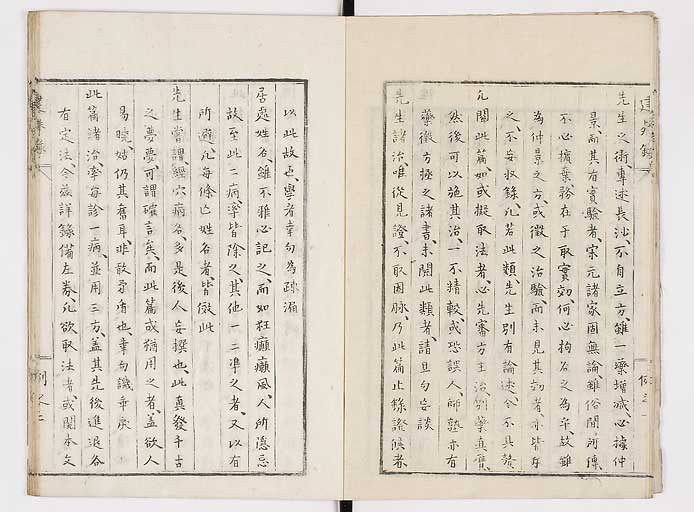 先生之術專述長沙不自立方雖一藥增減必據仲
景而其有實驗者宋元諸家固無論雖俗間所傳
不必擯棄務在于取實效何必拘古之為乎故雖
為仲景之方或徵之治驗而未見其效者亦皆存
之不妄收錄凡若此類先生別有論述今不具贅
凡閱此篇如或擬取法者必先審方主治別藥真贋
然後可以施其治一不精較或恐誤人師塾亦有
藥徵方極之諸書未閱此類者請且勿妄談
先生諸治唯從見證不取因脉乃此篇止錄證候者
以此故也學者幸勿為疎漏
居處姓名雖不雅必記之而如狂癲癩風人所隱忌
故至此二病率皆除之其他一二準之者又以有
所避凡每條亡姓名者皆倣此
先生嘗謂經穴病名多是後人妄撰也此真發千古
之夢夢可謂確言矣而此篇或猶用之者蓋欲人
易曉姑仍其舊耳非敢矛盾也幸勿譏乖戾
此篇諸治率每診一病並用三方蓋其先後進退各
有定法今茲詳錄備左券凡欲取法者或閱本文
建殊錄
例之一
例之二